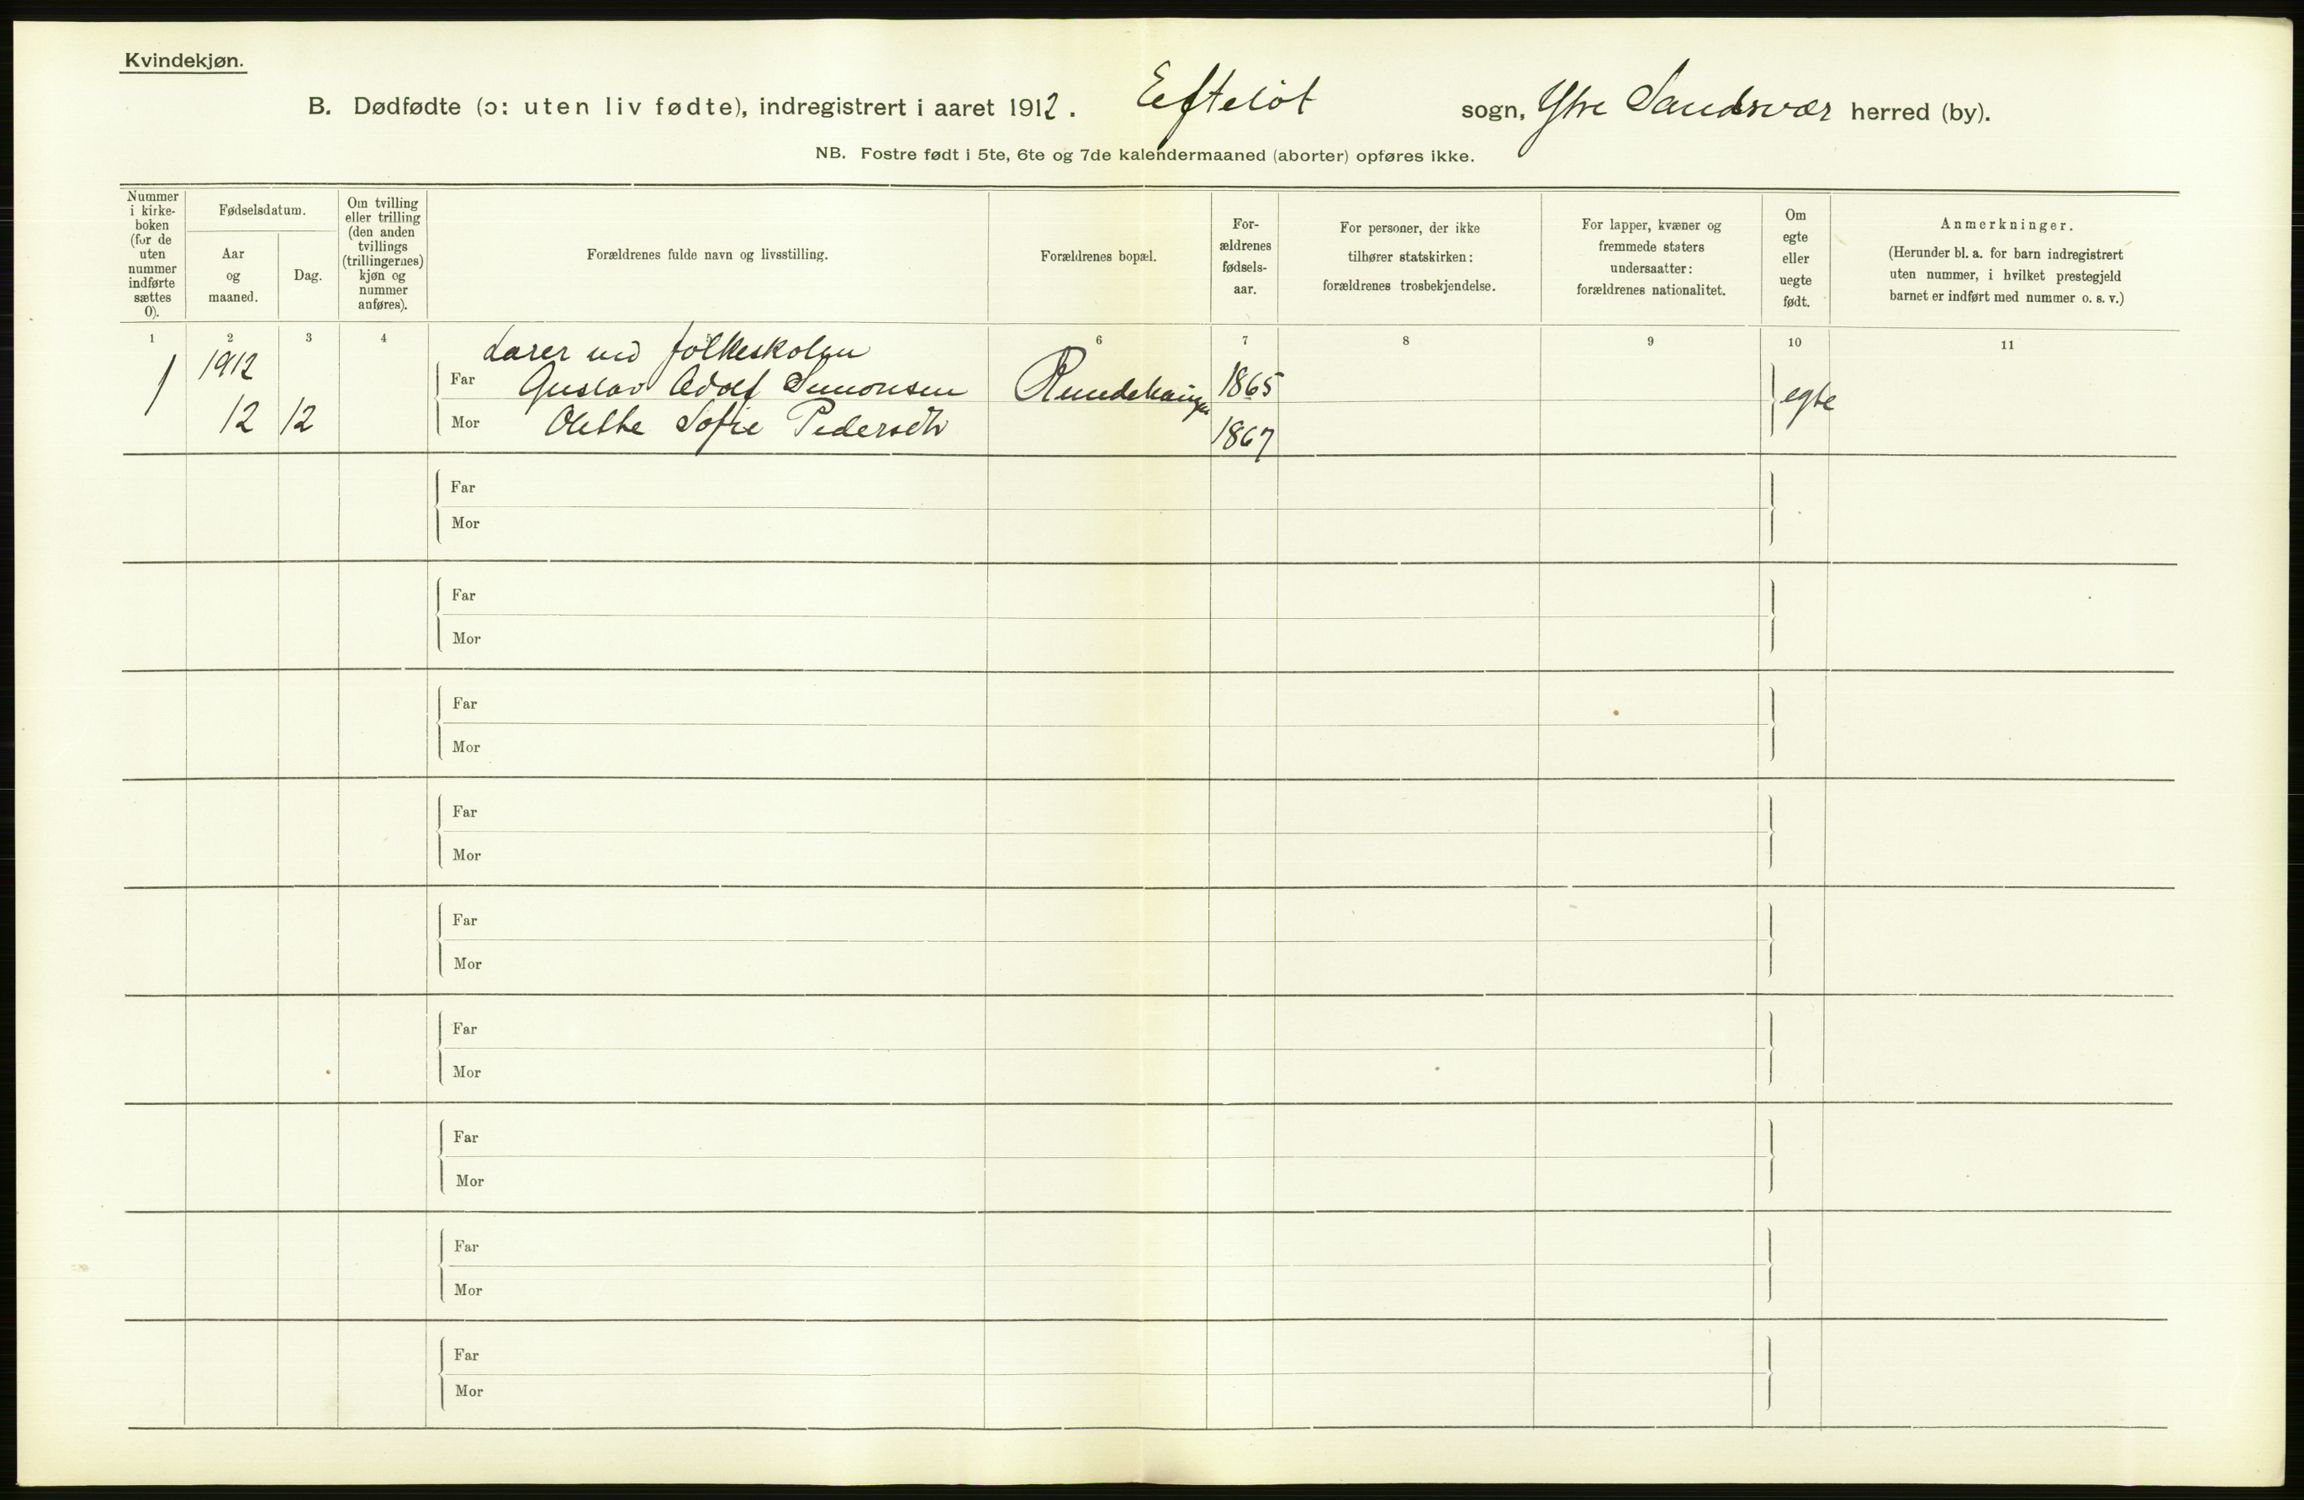 Kvindekjøn.
B. Dødfødte (ɔ: uten liv fødte), indregistrert i aaret 1912. Efteløt sogn, Ytre Sandsvær herred (by).
NB. Fostre født i 5te, 6te og 7de kalendermaaned (aborter) opføres ikke.
Nummer
i kirke-
boken
(for de
uten
nummer
indførte
sættes
0).
Fødselsdatum.
Aar
og
maaned.
Dag.
Om tvilling
eller trilling
(den anden
tvillings
(trillingernes)
kjøn og
nummer
anføres).
Forældrenes fulde navn og livsstilling.
Forældrenes bopæl.
For-
ældrenes
fødsels-
aar.
For personer, der ikke
tilhører statskirken:
forældrenes trosbekjendelse.
For lapper, kvæner og
fremmede staters
undersaatter:
forældrenes nationalitet.
Om
egte
eller
uegte
født.
Anmerkninger.
(Herunder bl. a. for barn indregistrert
uten nummer, i hvilket prestegjeld
barnet er indført med nummer o. s. v.)
1 2 3 4 5 6 7 8 9 10 11
Lærer ved folkeskolen
1 1912 Far Gustav Adolf Simonsen 1865 egte
12 12 Mor Olette Sofie Pedersdtr 1867
Far
Mor
Far
Mor
Far
Mor
Far
Mor
Far
Mor
Far
Mor
Far
Mor
Far
Mor
Far
Mor